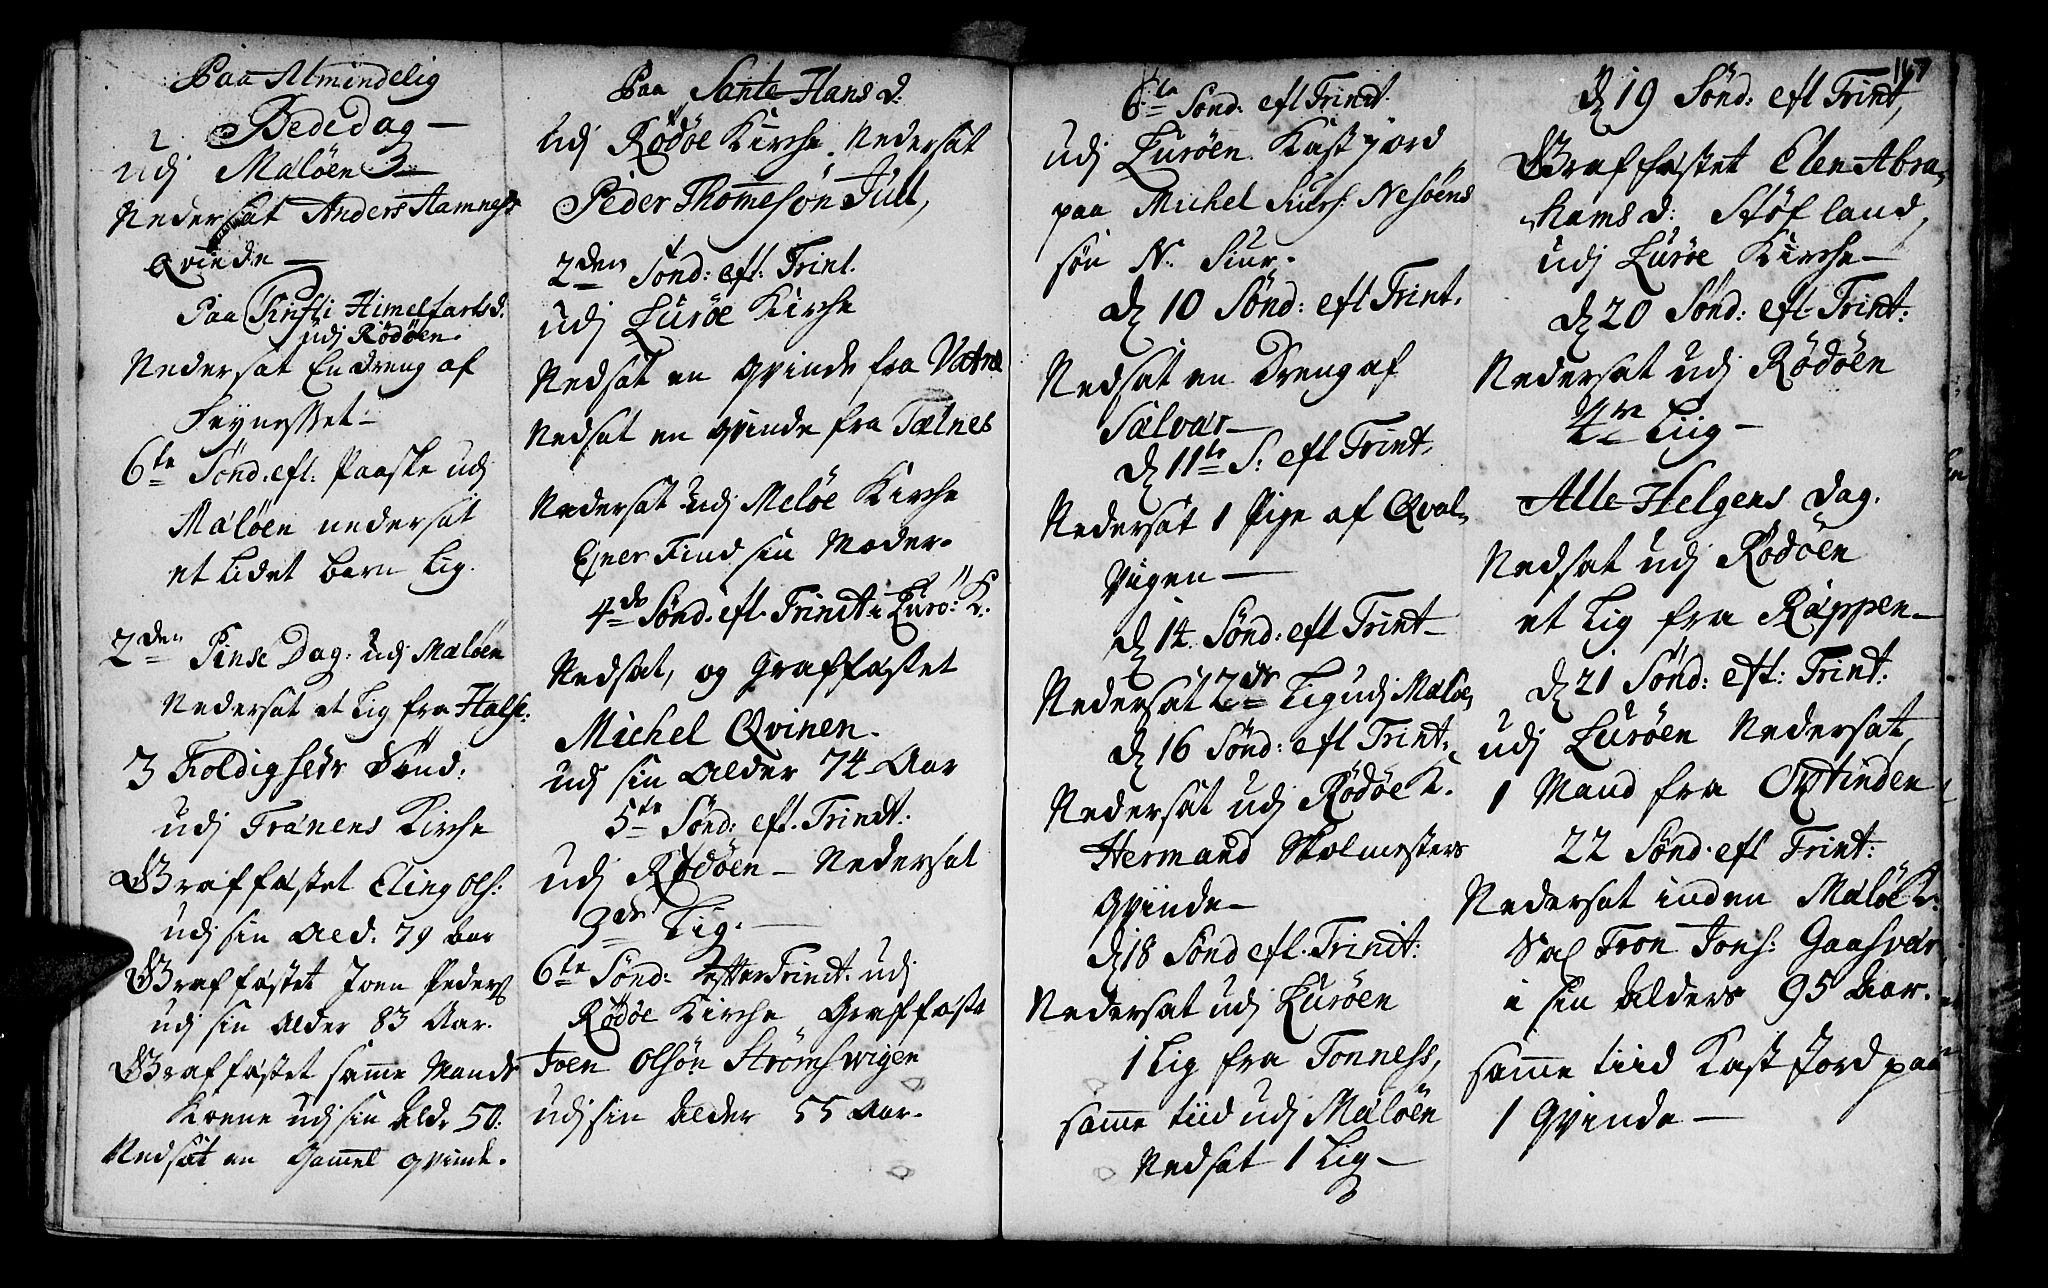 Paa Almindelig
Bededag —
udj Maløen
Nedersat Anders Hamness
Qvinde —
Paa Christi Himelfartsd.
udj Rödöen.
Nedersat En dreng af
6te Sönd. eft: Paaske udj
Maløen nedersat
et lidet barn Lig.
2den Pinse Dag: udj Maløen
Nedersat et Lig fra Halse.
3 Foldigheds Sönd:
udj Trænens Kirche
Graffæstet Eling Ols:
udj sin Ald. 79 Aar
Graffæstet Joen Peders
udj sin Alder 83 Aar.
Graffæstet samme Mands
Koene udj sin Aldr 50:
Nedsat en Gamel qvinde.
Paa Sante Hans d:
Udj Rödöe Kirche. Nedersat
Peder Thomesön Juul,
2den Sönd: eft: Trint.
udj Luröe Kirche
Nedsat en qvinde fra Vatne
Nedsat en qvinde fra Tælnes
Nedersat udj Meløe Kirche
Ejner Find sin Moder.
4de Sönd. eft. Trindt i Lurö: K.
Nedsat, og Graffæstet
Michel Qvinen.
udj sin Alder 74 Aar
5te Sönd: eft. Trindt.
udj Rödöen — Nedersat
3de Lig. —
6te Sönd: efter Trindt. udj
Rödöe Kirche Graffæste
Joen Olsön Strömswigen
udj sin Alder 55 Aar.
6te Sönd: eft Trindt.
udj Luröen Kast jord
paa Michel Siurs: Nesöens
sön N. Siur.
D 10 Sönd: eft Trint.
Nedsat en Dreng af
Sælvær —
D 11te S: eft Trint.
Nedersat 1 Pige af Qval-
vigen —
D 14 Sönd: eft Trint —
Nedersat 2de Lig udj Maløe,
D 16 Sönd: eft Trint:
Nedersat udj Rödöe K.
Hermand Skolmesters
Qvinde —
D 18 Sönd eft. Trinit:
Nedersat udj Luröen
1 Lig fra Tonness,
samme tiid udj Maløen
Nedsat 1 Lig —
167
D 19 Sönd: eft Trint,
Graffæstet Elen Abra-
hams d: Stöfland,
udj Luröe Kirche —
D 20 Sönd: eft Trint:
Nedersat udj Rödöen
4re Liig —
Alle Helgens Dag.
Nedsat udj Rödöen
et Lig fra Räppen —
D 21 Sönd: eft: Trint:
udj Luröen Nedersat,
1 Mand fra Oxtinden
22 Sönd. eft Trint:
Nedersat inden Maløe K.
Sal Tron Jons: Gaasvær
i sin Alders 95 Aar.
samme tiid Kast Jord paa
1 Qvinde —